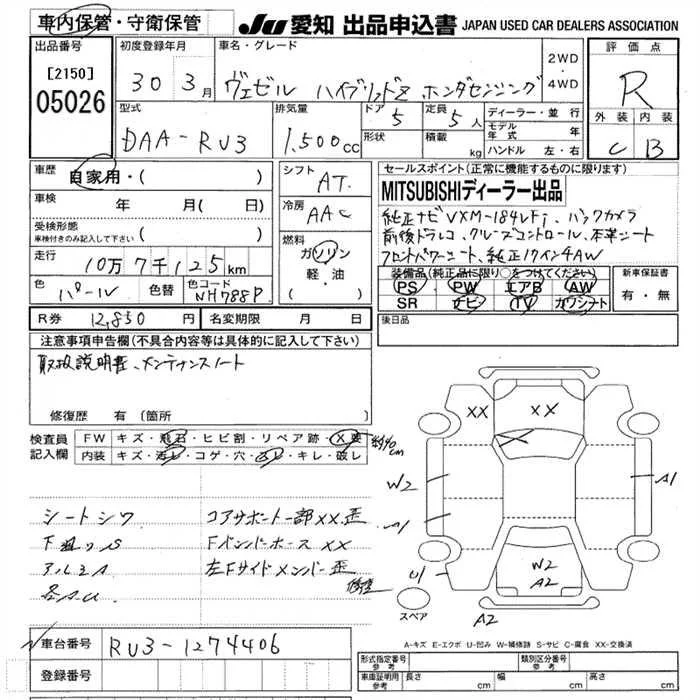 車内保管・守衛保管
JU 愛知 出品申込書 JAPAN USED CAR DEALERS ASSOCIATION
出品番号
[2150]
05026
初度登録年月
30 3月
車名・グレード
ヴェゼル ハイブリッドZ ホンダセンシング
2WD
・
4WD
評価点
R
外装 内装
C B
型式
DAA-RU3
排気量
1,500cc
ドア 5
形状
定員 5人
積載 kg
ディーラー・並行
モデル年式 年
ハンドル 左・右
車歴
自家用・( )
車検
年 月( 日)
受検形態
車検付きのみ記入して下さい ( )
走行
10万7千125km
色
パール
色替
色コード
NH788P
シフト
AT
冷房
AAC
燃料
ガソリン
軽・油
( )
セールスポイント(正常に機能するものに限ります)
MITSUBISHIディーラー出品
純正ナビVXM-184VFi、バックカメラ
前後ドラレコ、クルーズコントロール、本革シート
フロントパワーシート、純正17インチAW
装備品(純正品に限り○をつけてください)
PS PW エアB AW
SR ナビ TV カワシート
新車保証書
有・無
後日品
R券 12,850円 名変期限 月 日
注意事項申告欄(不具合内容等は具体的に記入して下さい)
取扱説明書、メンテナンスノート
修復歴 有〔箇所 〕
検査員
記入欄
FW キズ・飛石・ヒビ割・リペア跡・X要
内装 キズ・汚レ・コゲ・穴・スレ・キレ・破レ
約40cm
シートシワ
下廻りS
アルミA
各A.U
コアサポート一部XX、歪
Fインバーホース XX
左Fサイドメンバー歪
修理
XX XX
W2
A1
A1
U1
W2
A2
A2
スペア
A-キズ E-エクボ U-凹み W-補修跡 S-サビ C-腐食 XX-交換済
車台番号
RU3-1274406
登録番号
形式指定番号
参考
類別区分番号
参考
車庫証明用
参考
長さ cm 幅 cm 高さ cm